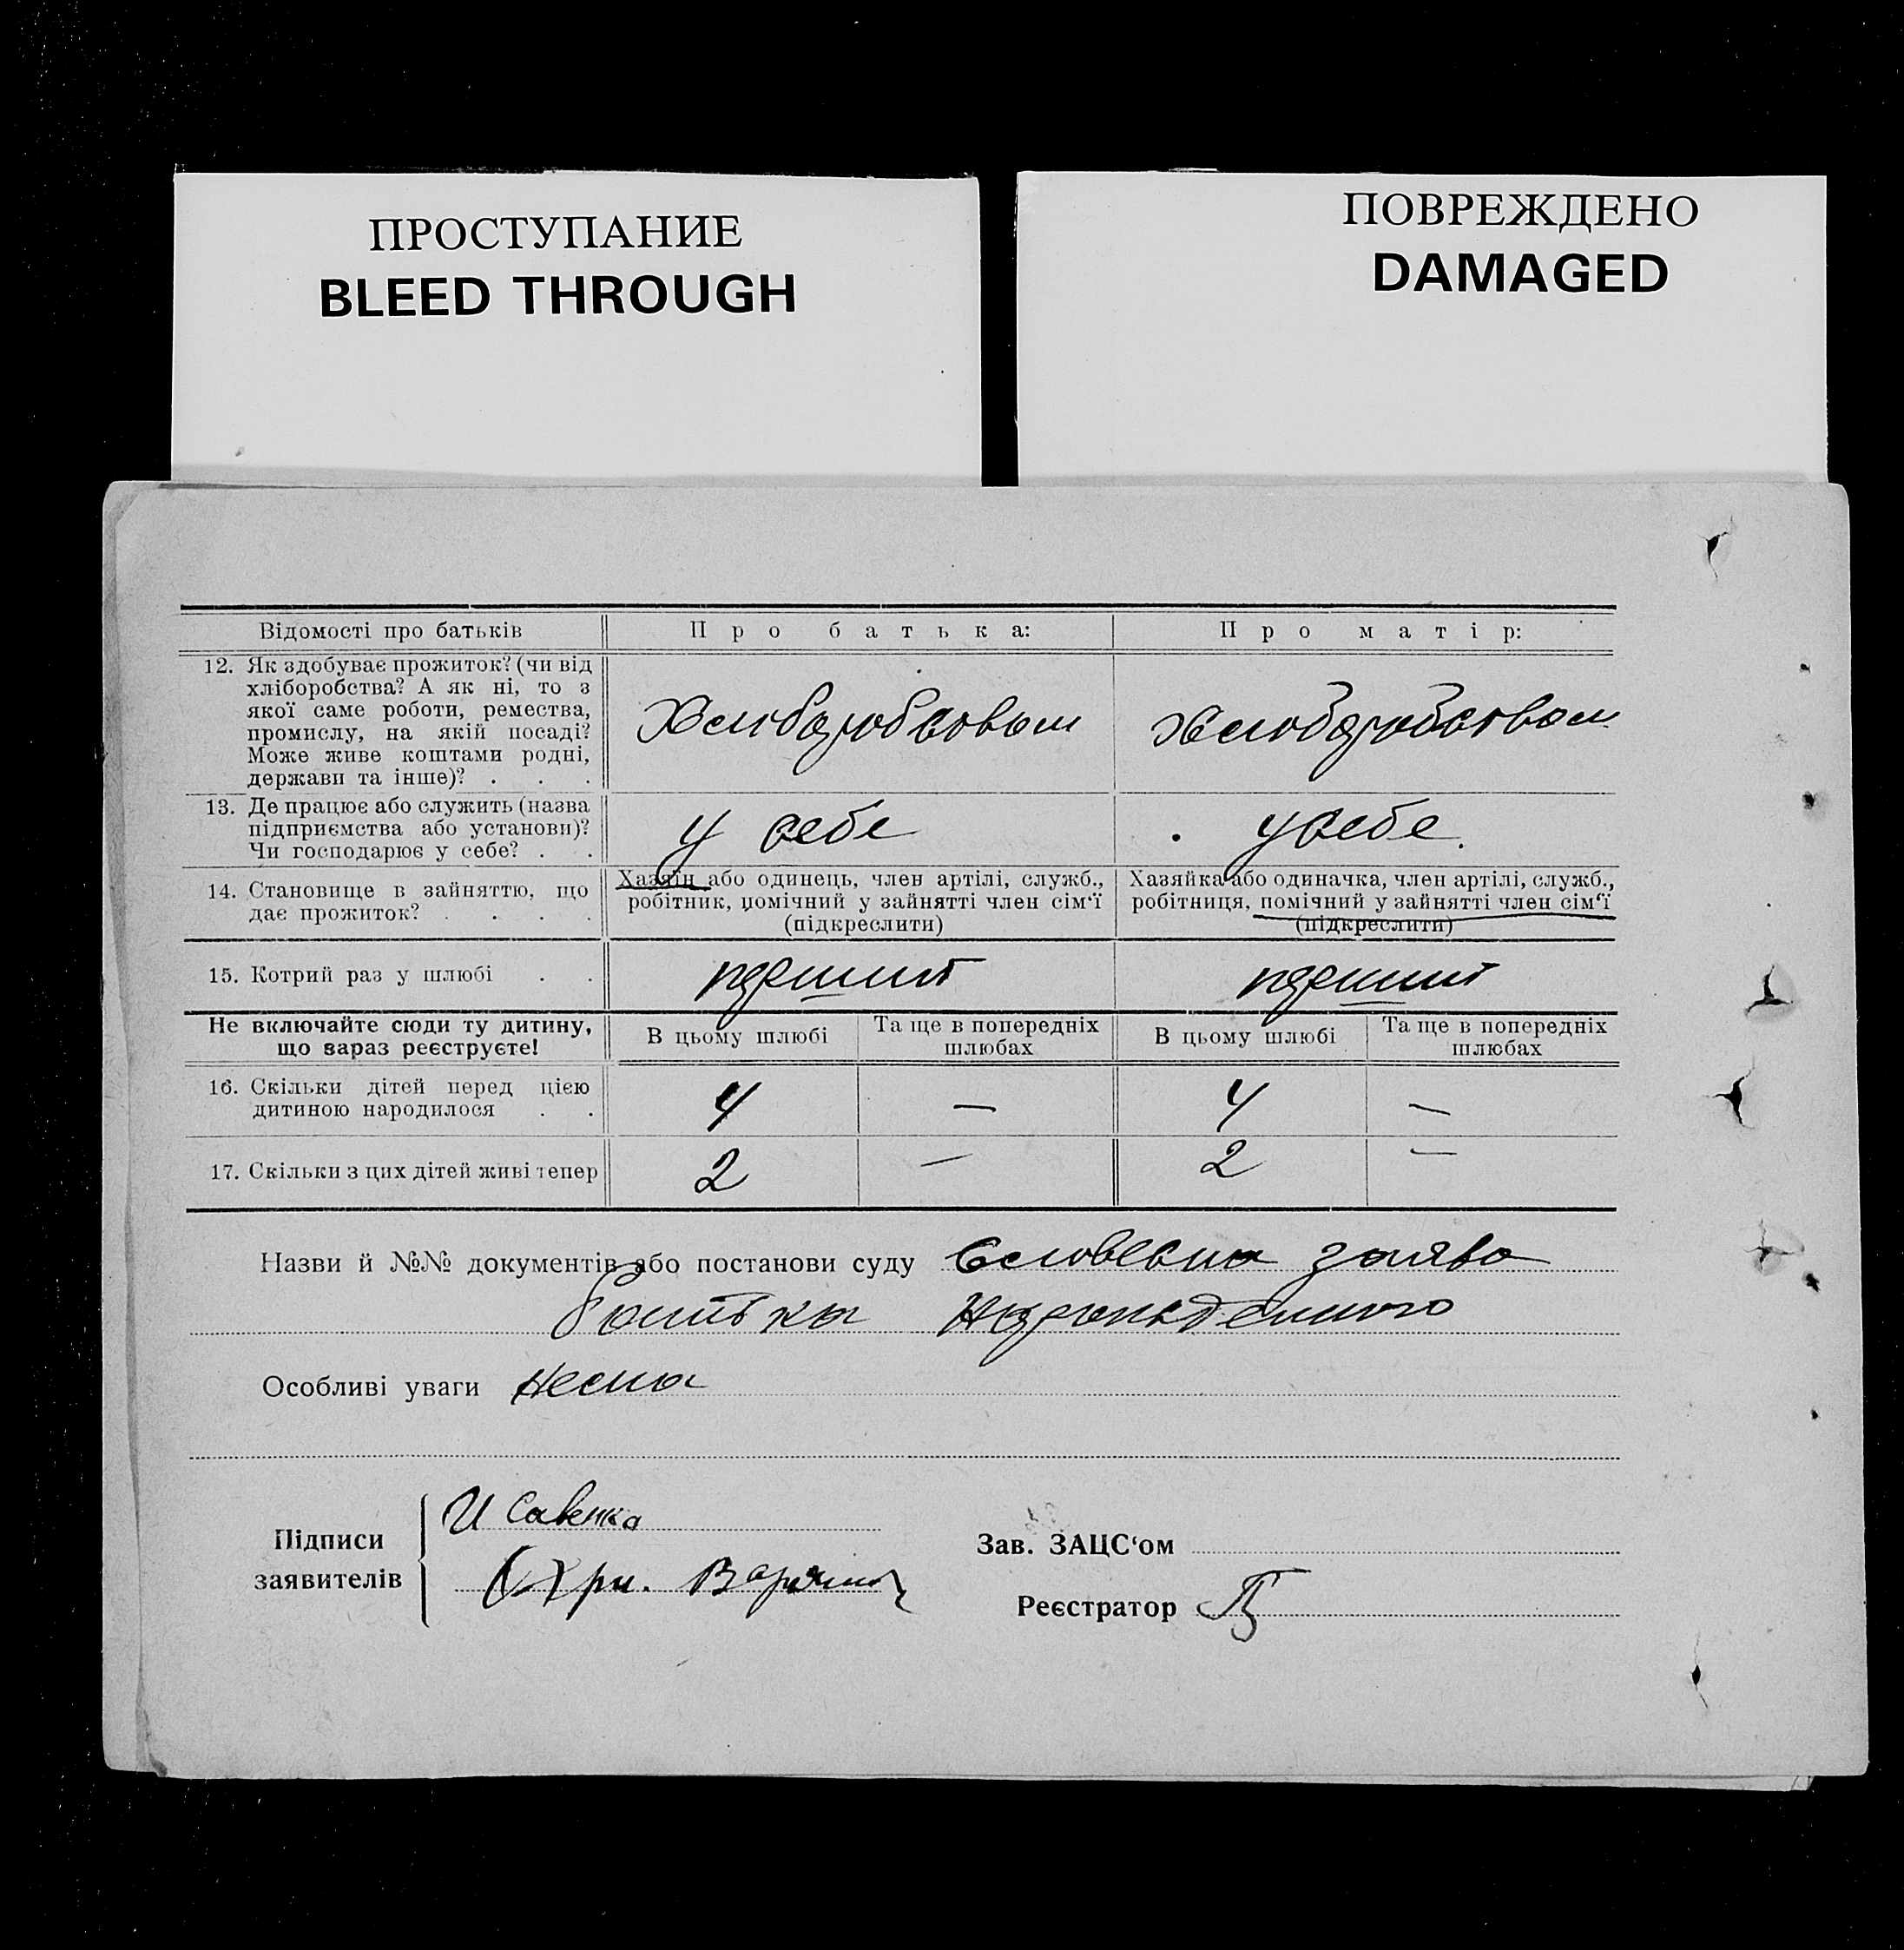 ПРОСТУПАНИЕ
BLEED THROUGH
ПОВРЕЖДЕНО
DAMAGED
Відомості про батьків
Про батька:
Про матір:
12. Як здобуває прожиток? (чи від
хліборобства? А як ні, то з
якої саме роботи, ремества,
промислу, на якій посаді?
Може живе коштами родні,
держави та інше)? . . .
Хлиборобсовом
хлиборобством
13. Де працює або служить (назва
підприємства або установи)?
Чи господарює у себе? . .
у себе
у себе.
14. Становище в зайняттю, що
дає прожиток? . . . .
Хазяїн або одинець, член артілі, служб.,
робітник, помічний у зайнятті член сім‘ї
(підкреслити)
Хазяйка або одиначка, член артілі, служб.,
робітниця, помічний у зайнятті член сім‘ї
(підкреслити)
15. Котрий раз у шлюбі . .
перший
перший
Не включайте сюди ту дитину,
що зараз реєструєте!
В цьому шлюбі
Та ще в попередніх
шлюбах
В цьому шлюбі
Та ще в попередніх
шлюбах
16. Скільки дітей перед цією
дитиною народилося . .
4
—
4
—
17. Скільки з цих дітей живі тепер
2
—
2
—
Назви й №№ документів або постановни суду Словесна заява
батька
Особливі уваги
Підписи
заявителів
И Савенко
Зав. ЗАЦС‘ом
Реєстратор